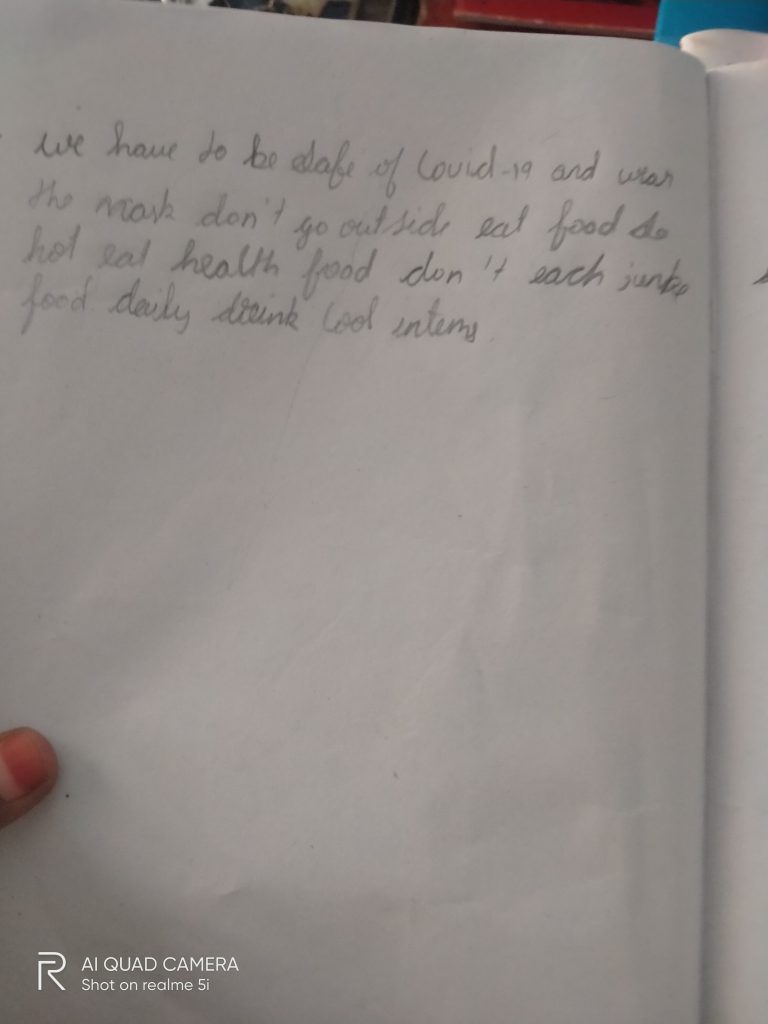 we have to be safe of Covid-19 and wear
the mask don't go outside eat food do
hot eat health food don't each junke
food daily drink Cool intems
AI QUAD CAMERA
Shot on realme 5i